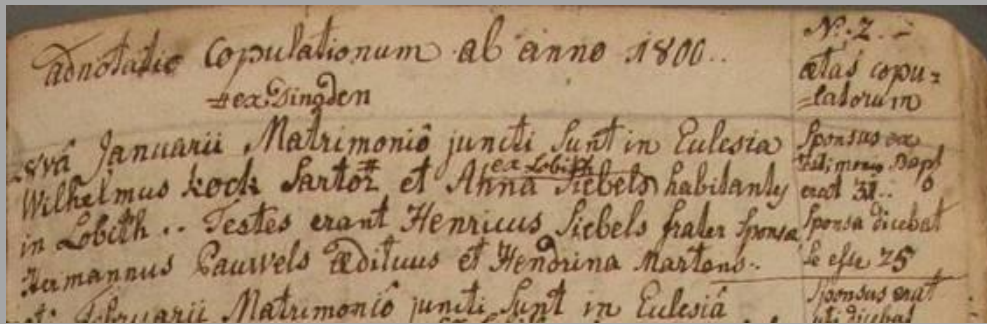 adnotatio copulationum ab anno 1800..
# ex Dingden
Januarii Matrimoniô juncti sunt in Eclesia
ex Lobith
Wilhelmus kock Sartor # et Anna Siebels habitants
in Lobith .. Testes erant Henricus Siebels frater Sponsa
Hermannus Pauwels Ædituus et Hendrina Martens..
Februarii Matrimoniô juncti sunt in Eclesiâ
No. 2.
ætas copu=
=latorum
Sponsus ex
Bapt
erat 31..
Sponsa dicebat
se esse 25
Sponsus erat
uti dicebat